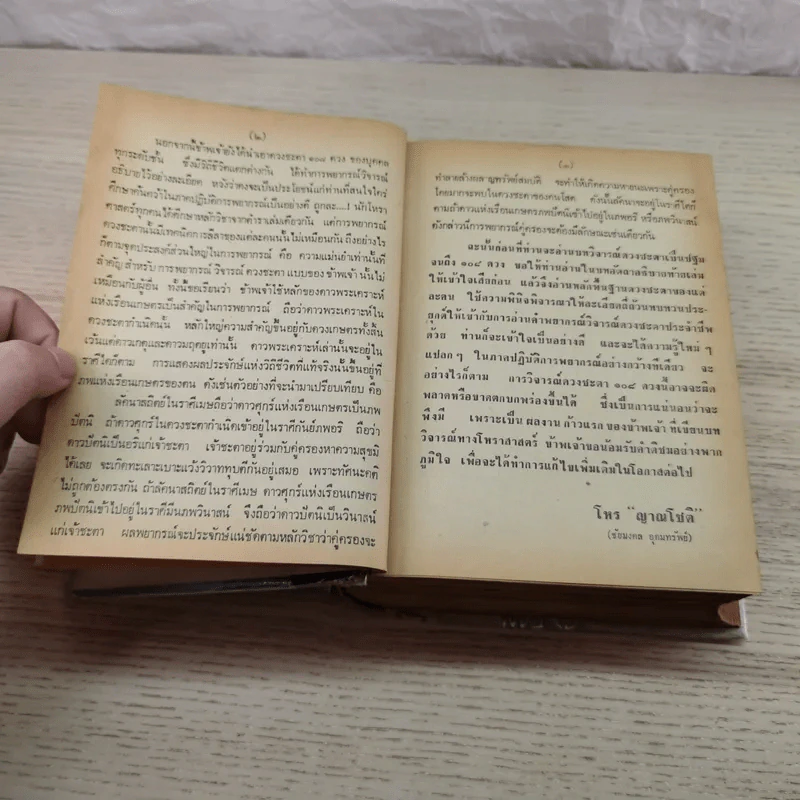 (๒)
นอกจากนี้ข้าพเจ้ายังได้นำเอาดวงชะตา ๑๐๘ ดวง ของบุคคล
ทุกระดับชั้น ซึ่งมีวิถีชีวิตแตกต่างกัน ได้ทำการพยากรณ์วิจารณ์
อธิบายไว้อย่างละเอียด หวังว่าคงจะเป็นประโยชน์แก่ท่านที่สนใจใคร่
ศึกษาค้นคว้าในภาคปฏิบัติการพยากรณ์เป็นอย่างดี ถูกละ....! นักโหรา
ศาสตร์ทุกคนได้ศึกษาหลักวิชาจากตำราเล่มเดียวกัน แต่การพยากรณ์
ดวงชะตานั้นมีเทคนิคการลีลาของแต่ละคนนั้นไม่เหมือนกัน ถึงอย่างไร
ก็ตามจุดประสงค์ส่วนใหญ่ในการพยากรณ์ คือ ความแม่นยำเท่านั้นที่
สำคัญ สำหรับ การ พยากรณ์ วิจารณ์ ดวงชะตา แบบของ ข้าพเจ้า นั้นไม่
เหมือนกับผู้อื่น ทั้งนี้ขอเรียนว่า ข้าพเจ้าใช้หลักของดาวพระเคราะห์
แห่งเรือนเกษตรเป็นสำคัญในการพยากรณ์ ถือว่าดาวพระเคราะห์ใน
ดวงชะตากำเนิดนั้น หลักใหญ่ความสำคัญขึ้นอยู่กับดวงเกษตรทั้งสิ้น
เว้นแต่ดาวเกตุและดาวมฤตยูเท่านั้น ดาวพระเคราะห์เหล่านั้นจะอยู่ใน
ราศีใดก็ตาม การแสดงผลประจักษ์แห่งวิถีชีวิตที่แท้จริงนั้นขึ้นอยู่ที่
ภพแห่งเรือนเกษตรของตน ดังเช่นตัวอย่างที่จะนำมาเปรียบเทียบ คือ
ลัคนาสถิตย์ในราศีเมษถือว่าดาวศุกร์แห่งเรือนเกษตรเป็นภพ
ปัตนิ ถ้าดาวศุกร์ในดวงชะตากำเนิดเข้าอยู่ในราศีกันย์ภพอริ ถือว่า
ดาวปัตนิเป็นอริแก่เจ้าชะตา เจ้าชะตาอยู่ร่วมกับคู่ครองหาความสุขมิ
ได้เลย จะเกิดทะเลาะเบาะแว้งวิวาททุบตีกันอยู่เสมอ เพราะทัศนะคติ
ไม่ถูกต้องตรงกัน ถ้าลัคนาสถิตย์ในราศีเมษ ดาวศุกร์แห่งเรือนเกษตร
ภพปัตนิเข้าไปอยู่ในราศีมีนภพวินาสน์ จึงถือว่าดาวปัตนิเป็นวินาสน์
แก่เจ้าชะตา ผลพยากรณ์จะประจักษ์แน่ชัดตามหลักวิชาว่าคู่ครองจะ
(๓)
ทำลายล้างผลาญทรัพย์สมบัติ จะทำให้เกิดความหายนะเพราะคู่ครอง
โดยมากจะพบในดวงชะตาของคนโสด ดังนั้นลัคนาจะอยู่ในราศีใดก็
ตามถ้าดาวแห่งเรือนเกษตรภพปัตนิเข้าไปอยู่ในภพอริ หรือภพวินาสน์
ดังกล่าวนี้การพยากรณ์คู่ครองจะต้องมีลักษณะเช่นเดียวกัน
ฉะนั้นก่อนที่ท่านจะอ่านบทวิจารณ์ดวงชะตาเป็นปฐม
จนถึง ๑๐๘ ดวง ขอให้ท่านอ่านในบทคลาดอธิบายท้ายเล่ม
ให้เข้าใจเสียก่อน แล้วจึงอ่านหลักพื้นฐานดวงชะตาของแต่
ละคน ใช้ความพินิจพิจารณาให้ละเอียดถี่ถ้วนทบทวนประ-
ยุกต์ให้เข้ากับการอ่านคำพยากรณ์วิจารณ์ดวงชะตาประจำชีพ
ด้วย ท่านก็จะเข้าใจเป็นอย่างดี และจะได้ความรู้ใหม่ ๆ
แปลก ๆ ในภาคปฏิบัติการพยากรณ์อย่างกว้างทีเดียว จะ
อย่างไรก็ตาม การวิจารณ์ดวงชะตา ๑๐๘ ดวงนี้อาจจะผิด
พลาดหรือขาดตกบกพร่องขึ้นได้ ซึ่งเป็นการแน่นอนว่าจะ
พึงมี เพราะเป็น ผลงาน ก้าวแรก ของข้าพเจ้า ที่เขียนบท
วิจารณ์ทางโหราศาสตร์ ข้าพเจ้าขอน้อมรับคำติชมอย่างพาก
ภูมิใจ เพื่อจะได้ทำการแก้ไขเพิ่มเติมในโอกาสต่อไป
โหร "ญาณโชติ"
(ชัยมงคล อุดมทรัพย์)